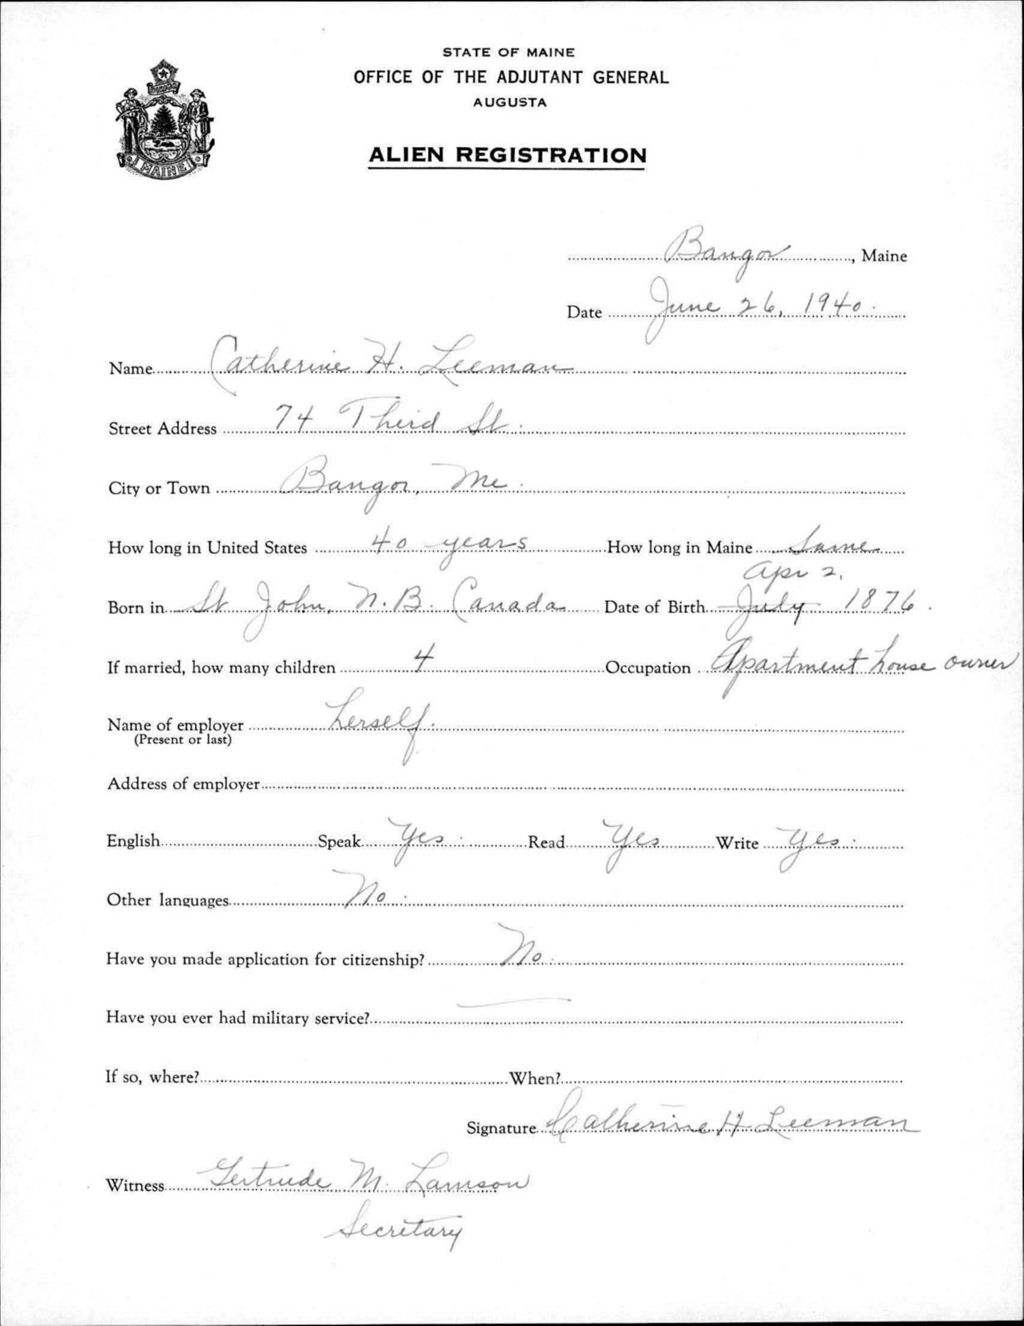 STATE OF MAINE
OFFICE OF THE ADJUTANT GENERAL
AUGUSTA
ALIEN REGISTRATION
MAINE
Bangor, Maine
Date June 26, 1940.
Name Catherine H. Leeman
Street Address 74 Third St.
City or Town Bangor, Me.
How long in United States 40 years How long in Maine Same
Apr 2,
Born in St John, N.B. Canada Date of Birth July 1876.
If married, how many children 4 Occupation Apartment house owner
Name of employer herself.
(Present or last)
Address of employer
English Speak Yes. Read Yes Write Yes.
Other languages No.
Have you made application for citizenship? No.
Have you ever had military service? —
If so, where? When?
Signature Catherine H Leeman
Witness Gertrude M. Lamson
Secretary